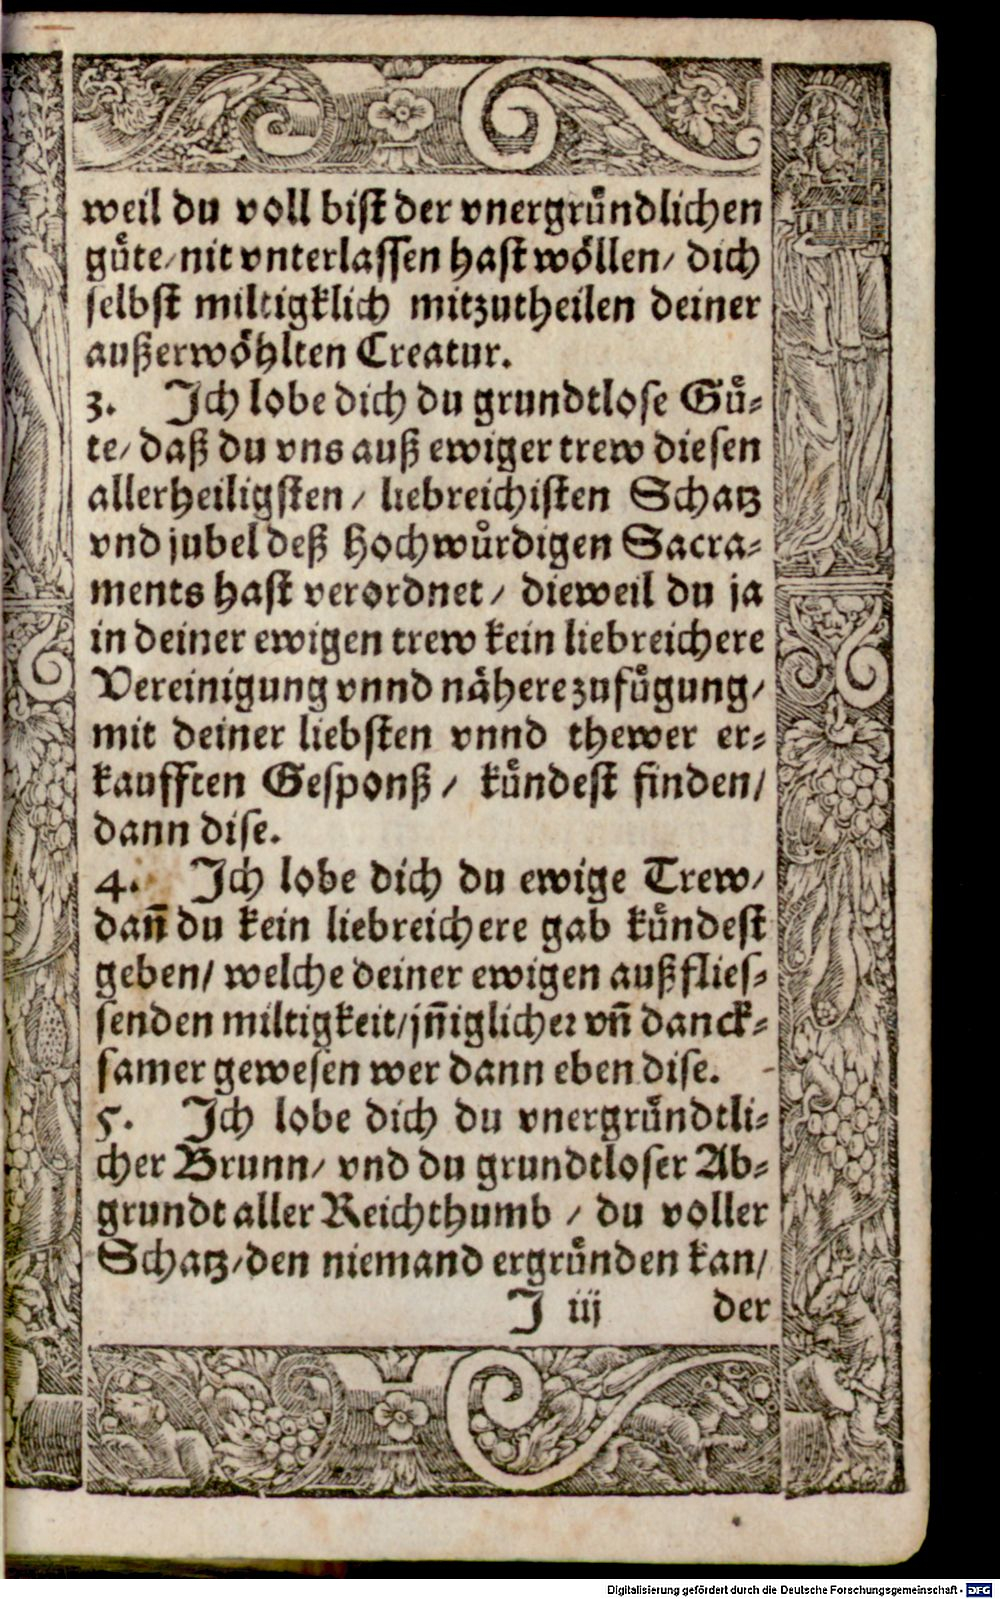 weil du voll bist der vnergruͤndlichen
guͤte/ nit vnterlassen hast woͤllen/ dich
selbst miltigklich mitzutheilen deiner
außerwoͤhlten Creatur.
3. Ich lobe dich du grundtlose Guͤ-
te/ daß du vns auß ewiger trew diesen
allerheiligsten / liebreichisten Schatz
vnd jubel deß Hochwuͤrdigen Sacra-
ments hast verordnet / dieweil du ja
in deiner ewigen trew kein liebreichere
Vereinigung vnnd naͤhere zufuͤgung/
mit deiner liebsten vnnd thewer er-
kaufften Gesponß / kuͤndest finden/
dann dise.
4. Ich lobe dich du ewige Trew/
dañ du kein liebreichere gab kuͤndest
geben/ welche deiner ewigen außflies-
senden miltigkeit/ jñiglicher vñ danck-
samer gewesen wer dann eben dise.
5. Ich lobe dich du vnergruͤndtli-
cher Brunn/ vnd du grundtloser Ab-
grundt aller Reichthumb / du voller
Schatz/ den niemand ergruͤnden kan/
J iij der
Digitalisierung gefördert durch die Deutsche Forschungsgemeinschaft - DFG